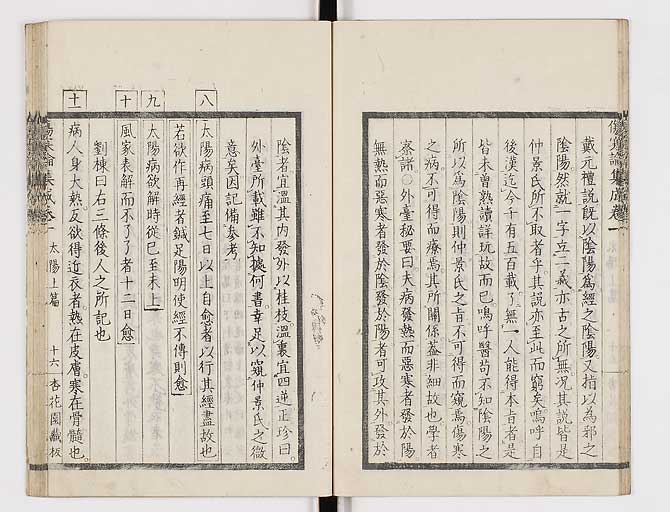 傷寒論集成卷一
戴元禮說既以陰陽爲經之陰陽又指以為邪之
陰陽然就一字立二義亦古之所無況其說皆是
仲景氏所不取者乎其說亦至此而窮矣嗚呼自
後漢迄今千有五百載了無一人能得本旨者是
皆未曾熟讀詳玩故而已嗚呼醫苟不知陰陽之
所以爲陰陽則仲景氏之旨不可得而窺焉傷寒
之病不可得而療焉其所關係蓋非細故也學者
察諸○外臺秘要曰夫病發熱而惡寒者發於陽
無熱而惡寒者發於陰發於陽者可攻其外發於
陰者宜溫其內發外以桂枝溫裏宜四逆正珍曰
外臺所載雖不知據何書幸足以窺仲景氏之微
意矣因記備參考
八
太陽病頭痛至七日以上自愈者以行其經盡故也
若欲作再經者鍼足陽明使經不傳則愈
九
太陽病欲解時從巳至未上
十
風家表解而不了了者十二日愈
劉棟曰右三條後人之所記也
十一
病人身大熱反欲得近衣者熱在皮膚寒在骨髓也
傷寒論集成卷一 太陽上篇 十六 杏花園藏板